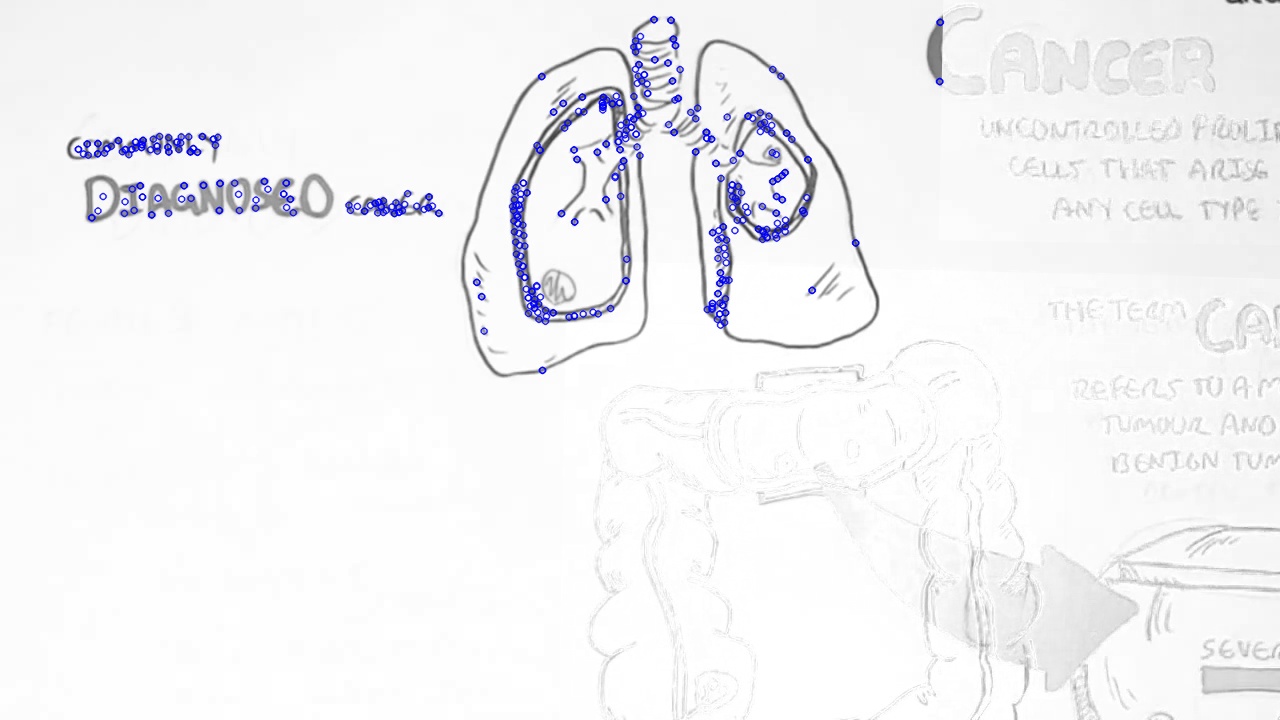 COMMONLY
DIAGNOSED
CANCER
UNCONTROLLED PROLI
CELLS THAT ARISE
ANY CELL TYPE
THE TERM CA
REFERS TO A M
TUMOUR AND
BENIGN TUM
SEVER